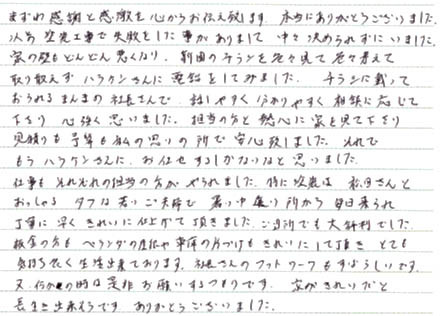 まずわ感謝と感激を心からお伝え致します。本当にありがとうございました。
以前塗装工事で失敗をした事がありまして 中々決められずにいました。
家の壁もどんどん悪くなり、新聞のチラシを色々見て色々考えて
取り敢えずハラケンさんに電話をしてみました。チラシに載って
おられるまんまの社長さんで、話しやすく分かりやすく相談に応じて
下さり 心強く思いました。担当の方も熱心に家を見て下さり
見積りも予算も私の思いの所で安心致しました。それで
もうハラケンさんに、お任せするしかないなと思いました。
仕事もそれぞれの担当の方がやられました。特に塗装は 松田さんと
おっしゃる タフな若いご夫婦で 暑い中遠い所から毎日来られ
丁寧に早くきれいに仕上げて頂きました。ご近所でも大評判でした。
板金の方も ベランダの屋根や車庫の片づけもきれいにして頂き とても
気持ち良く生活出来ております。社長さんのフットワークもすばらしいです。
又、何かの時は是非お願いするつもりです。家がきれいだと
長生き出来そうです ありがとうございました。